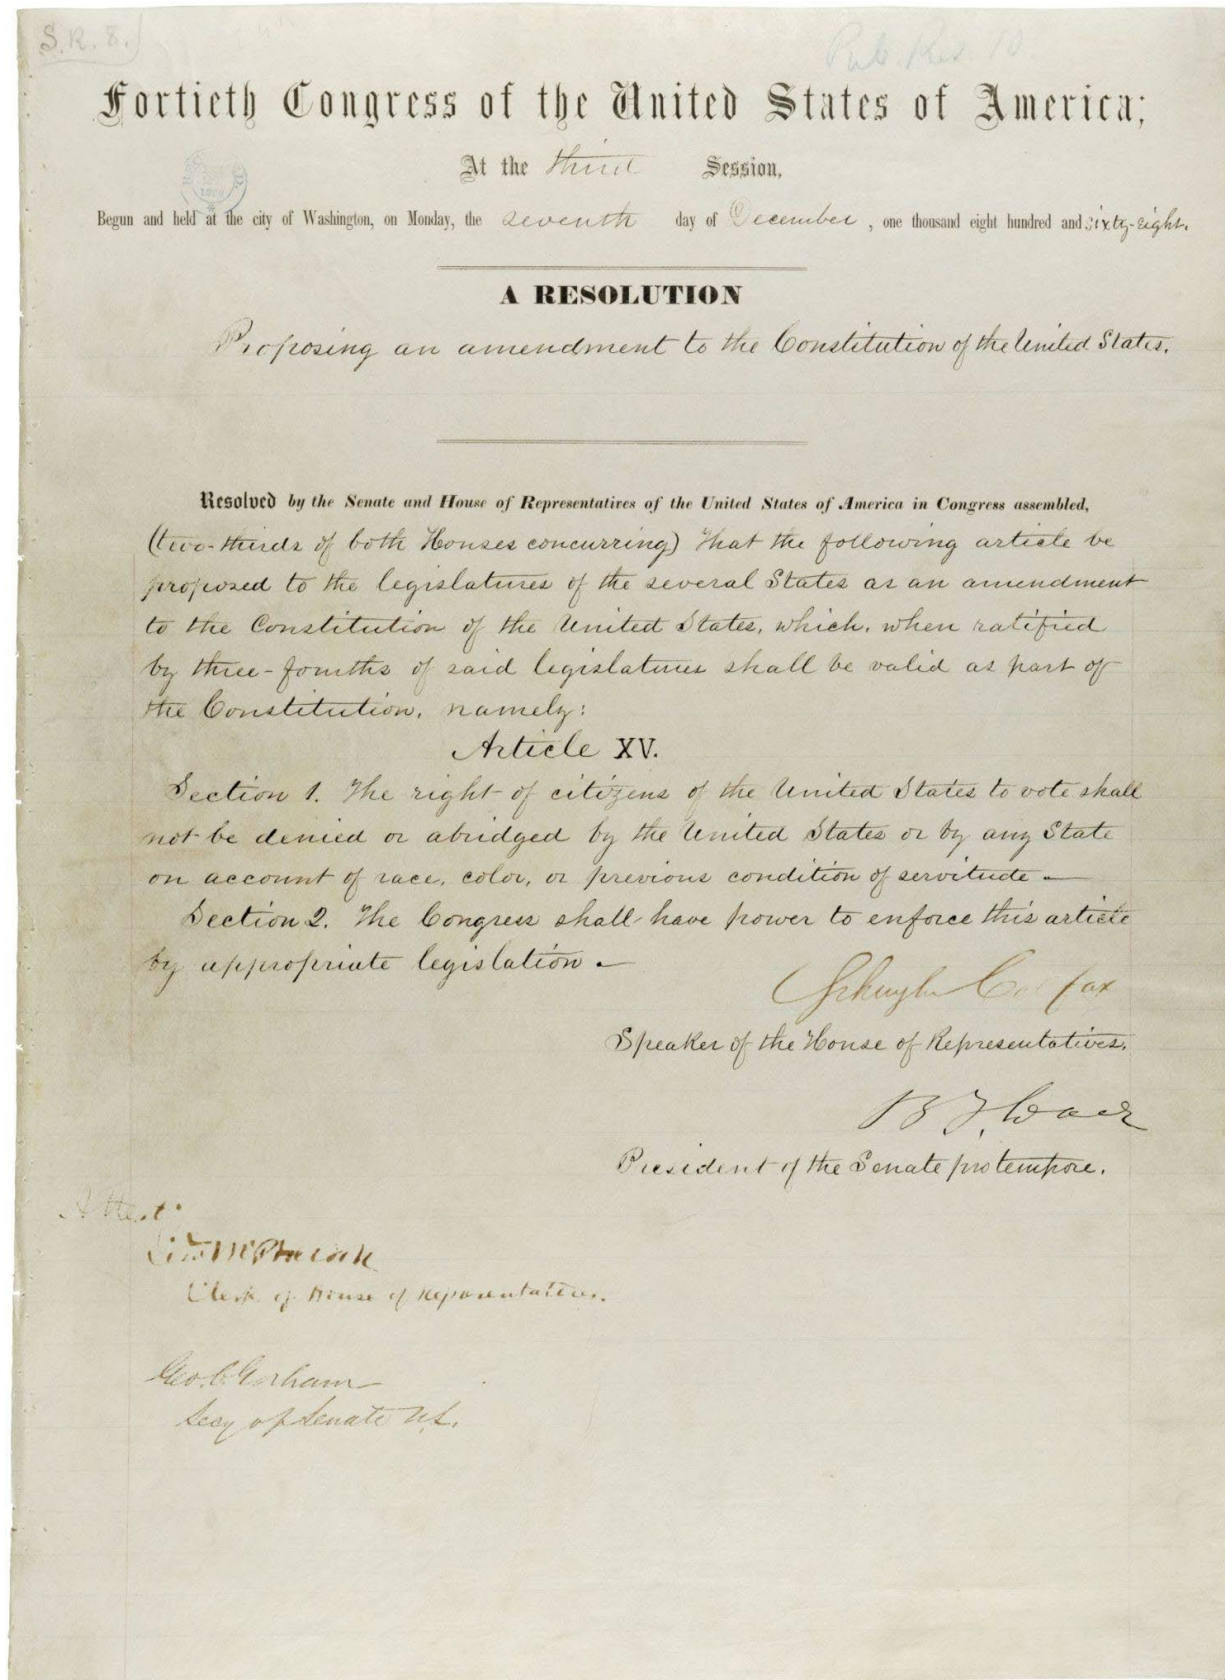 S.R. 8.)
Pub. Res. 10.
Fortieth Congress of the United States of America;
At the third Session,
Begun and held at the city of Washington, on Monday, the seventh day of December, one thousand eight hundred and sixty-eight.
A RESOLUTION
Proposing an amendment to the Constitution of the United States.
Resolved by the Senate and House of Representatives of the United States of America in Congress assembled,
(two-thirds of both Houses concurring) That the following article be
proposed to the legislatures of the several States as an amendment
to the Constitution of the United States, which, when ratified
by three-fourths of said legislatures shall be valid as part of
the Constitution, namely:
Article XV.
Section 1. The right of citizens of the United States to vote shall
not be denied or abridged by the United States or by any State
on account of race, color, or previous condition of servitude—
Section 2. The Congress shall have power to enforce this article
by appropriate legislation—
Schuyler Colfax
Speaker of the House of Representatives.
B F Wade
President of the Senate pro tempore.
Attest:
Edwd McPherson
Clerk of House of Representatives.
Geo. C. Gorham
Secy of Senate U.S.